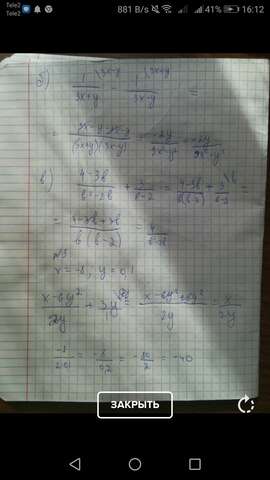 Tele2
Tele2
881 B/s
4G
16:12
б) 1/(3x+y) \3x-y - 1/(3x-y) \3x+y =
= (3x-y-3x-y)/((3x+y)(3x-y)) = -2y/(9x²-y²) = -2y/(9x²-y²)
в) (4-3b)/(b²-2b) + 3/(b-2) = (4-3b)/(b(b-2)) + 3/(b-2) \b =
= (4-3b+3b)/(b(b-2)) = 4/(b²-2b)
№3
x=-8, y=0,1
(x-6y²)/2y + 3y \2y = (x-6y²+6y²)/2y = x/2y
-8/(2·0,1) = -8/0,2 = -80/2 = -40
ЗАКРЫТЬ